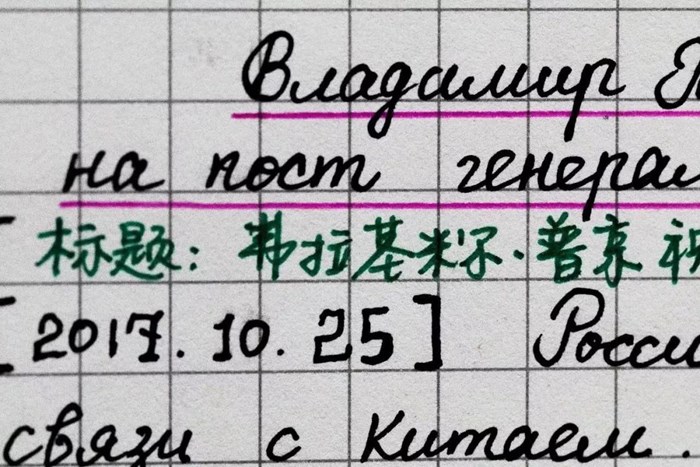 Владимир
на пост генерал
标题: 弗拉基米尔·普京 祝
[2017.10.25] Росси
связи с Китаем.